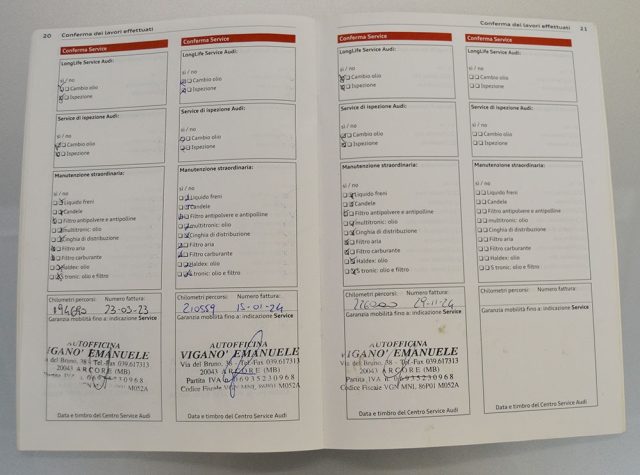 20 Conferma dei lavori effettuati
Conferma Service
LongLife Service Audi:
sì / no
Cambio olio
Ispezione
Service di ispezione Audi:
sì / no
Cambio olio
Ispezione
Manutenzione straordinaria:
sì / no
Liquido freni
Candele
Filtro antipolvere e antipolline
multitronic: olio
Cinghia di distribuzione
Filtro aria
Filtro carburante
Haldex: olio
S tronic: olio e filtro
Chilometri percorsi: Numero fattura:
194690 23-03-23
Garanzia mobilità fino a: indicazione Service
AUTOFFICINA
VIGANO' EMANUELE
Via del Bruno, 38 - Tel.-Fax 039.617313
20043 ARCORE (MB)
Partita IVA 06935230968
M052A
Data e timbro del Centro Service Audi
Conferma Service
LongLife Service Audi:
sì / no
Cambio olio
Ispezione
Service di ispezione Audi:
sì / no
Cambio olio
Ispezione
Manutenzione straordinaria:
sì / no
Liquido freni
Candele
Filtro antipolvere e antipolline
multitronic: olio
Cinghia di distribuzione
Filtro aria
Filtro carburante
Haldex: olio
S tronic: olio e filtro
Chilometri percorsi: Numero fattura:
210559 15-01-24
Garanzia mobilità fino a: indicazione Service
AUTOFFICINA
VIGANO' EMANUELE
Via del Bruno, 38 - Tel.-Fax 039.617313
20043 ARCORE (MB)
Partita IVA 06935230968
Codice Fiscale VGN MNL 86P01 M052A
Data e timbro del Centro Service Audi
Conferma dei lavori effettuati 21
Conferma Service
LongLife Service Audi:
sì / no
Cambio olio
Ispezione
Service di ispezione Audi:
sì / no
Cambio olio
Ispezione
Manutenzione straordinaria:
sì / no
Liquido freni
Candele
Filtro antipolvere e antipolline
multitronic: olio
Cinghia di distribuzione
Filtro aria
Filtro carburante
Haldex: olio
S tronic: olio e filtro
Chilometri percorsi: Numero fattura:
29-11-24
Garanzia mobilità fino a: indicazione Service
AUTOFFICINA
VIGANO' EMANUELE
Via del Bruno, 38 - Tel.-Fax 039.617313
20043 ARCORE (MB)
Partita IVA 06935230968
Codice Fiscale VGN MNL 86P01 M052A
Data e timbro del Centro Service Audi
Conferma Service
LongLife Service Audi:
sì / no
Cambio olio
Ispezione
Service di ispezione Audi:
sì / no
Cambio olio
Ispezione
Manutenzione straordinaria:
sì / no
Liquido freni
Candele
Filtro antipolvere e antipolline
multitronic: olio
Cinghia di distribuzione
Filtro aria
Filtro carburante
Haldex: olio
S tronic: olio e filtro
Chilometri percorsi: Numero fattura:
Garanzia mobilità fino a: indicazione Service
Data e timbro del Centro Service Audi